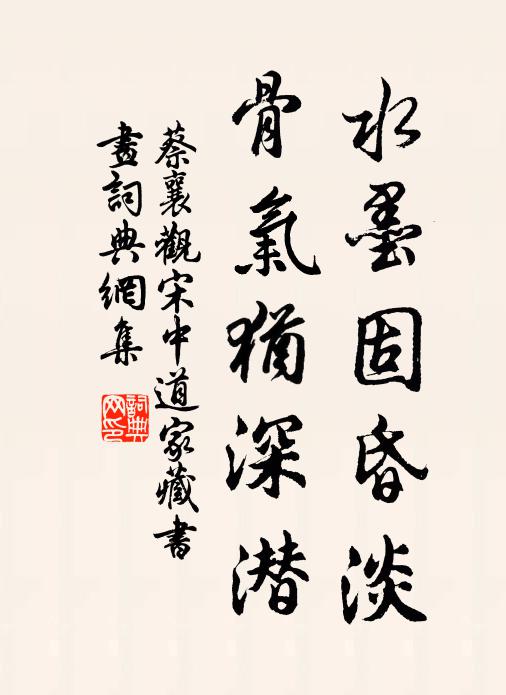 水墨固昏淡
骨氣猶深潜
蔡襄觀宋中道家藏書
畫詞典網集
詞典网印